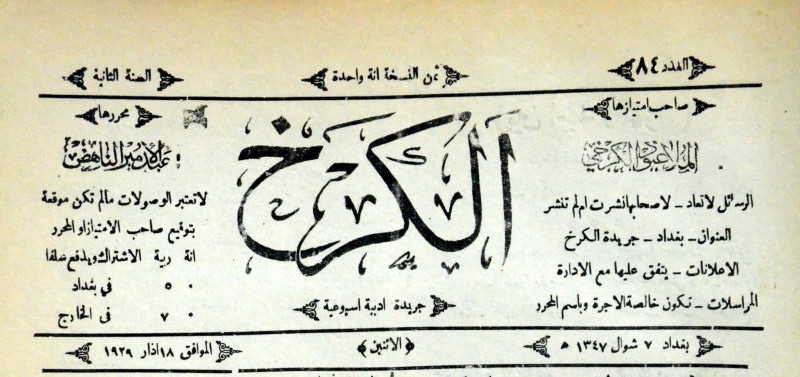 العدد ٨٤
ثمن النسخة انة واحدة
السنة الثانية
صاحب امتيازها
الملا عبود الكرخي
الرسائل لاتعاد ــ لاصحابها نشرت ام لم تنشر
العنوان ــ بغداد ــ جريدة الكرخ
الاعلانات ــ يتفق عليها مع الادارة
المراسلات ــ تكون خالصة الاجرة وباسم المحرر
الكرخ
جريدة ادبية اسبوعية
محررها
عبد الامير الناهض
لاتعتبر الوصولات مالم تكن موقعة
بتوقيع صاحب الامتياز او المحرر
انة ربية الاشتراك ويدفع سلفا
٠ ٥ في بغداد
٠ ٧ في الخارج
بغداد ٧ شوال ١٣٤٧ ه
﴿الاثنين﴾
الموافق ١٨ اذار ١٩٢٩